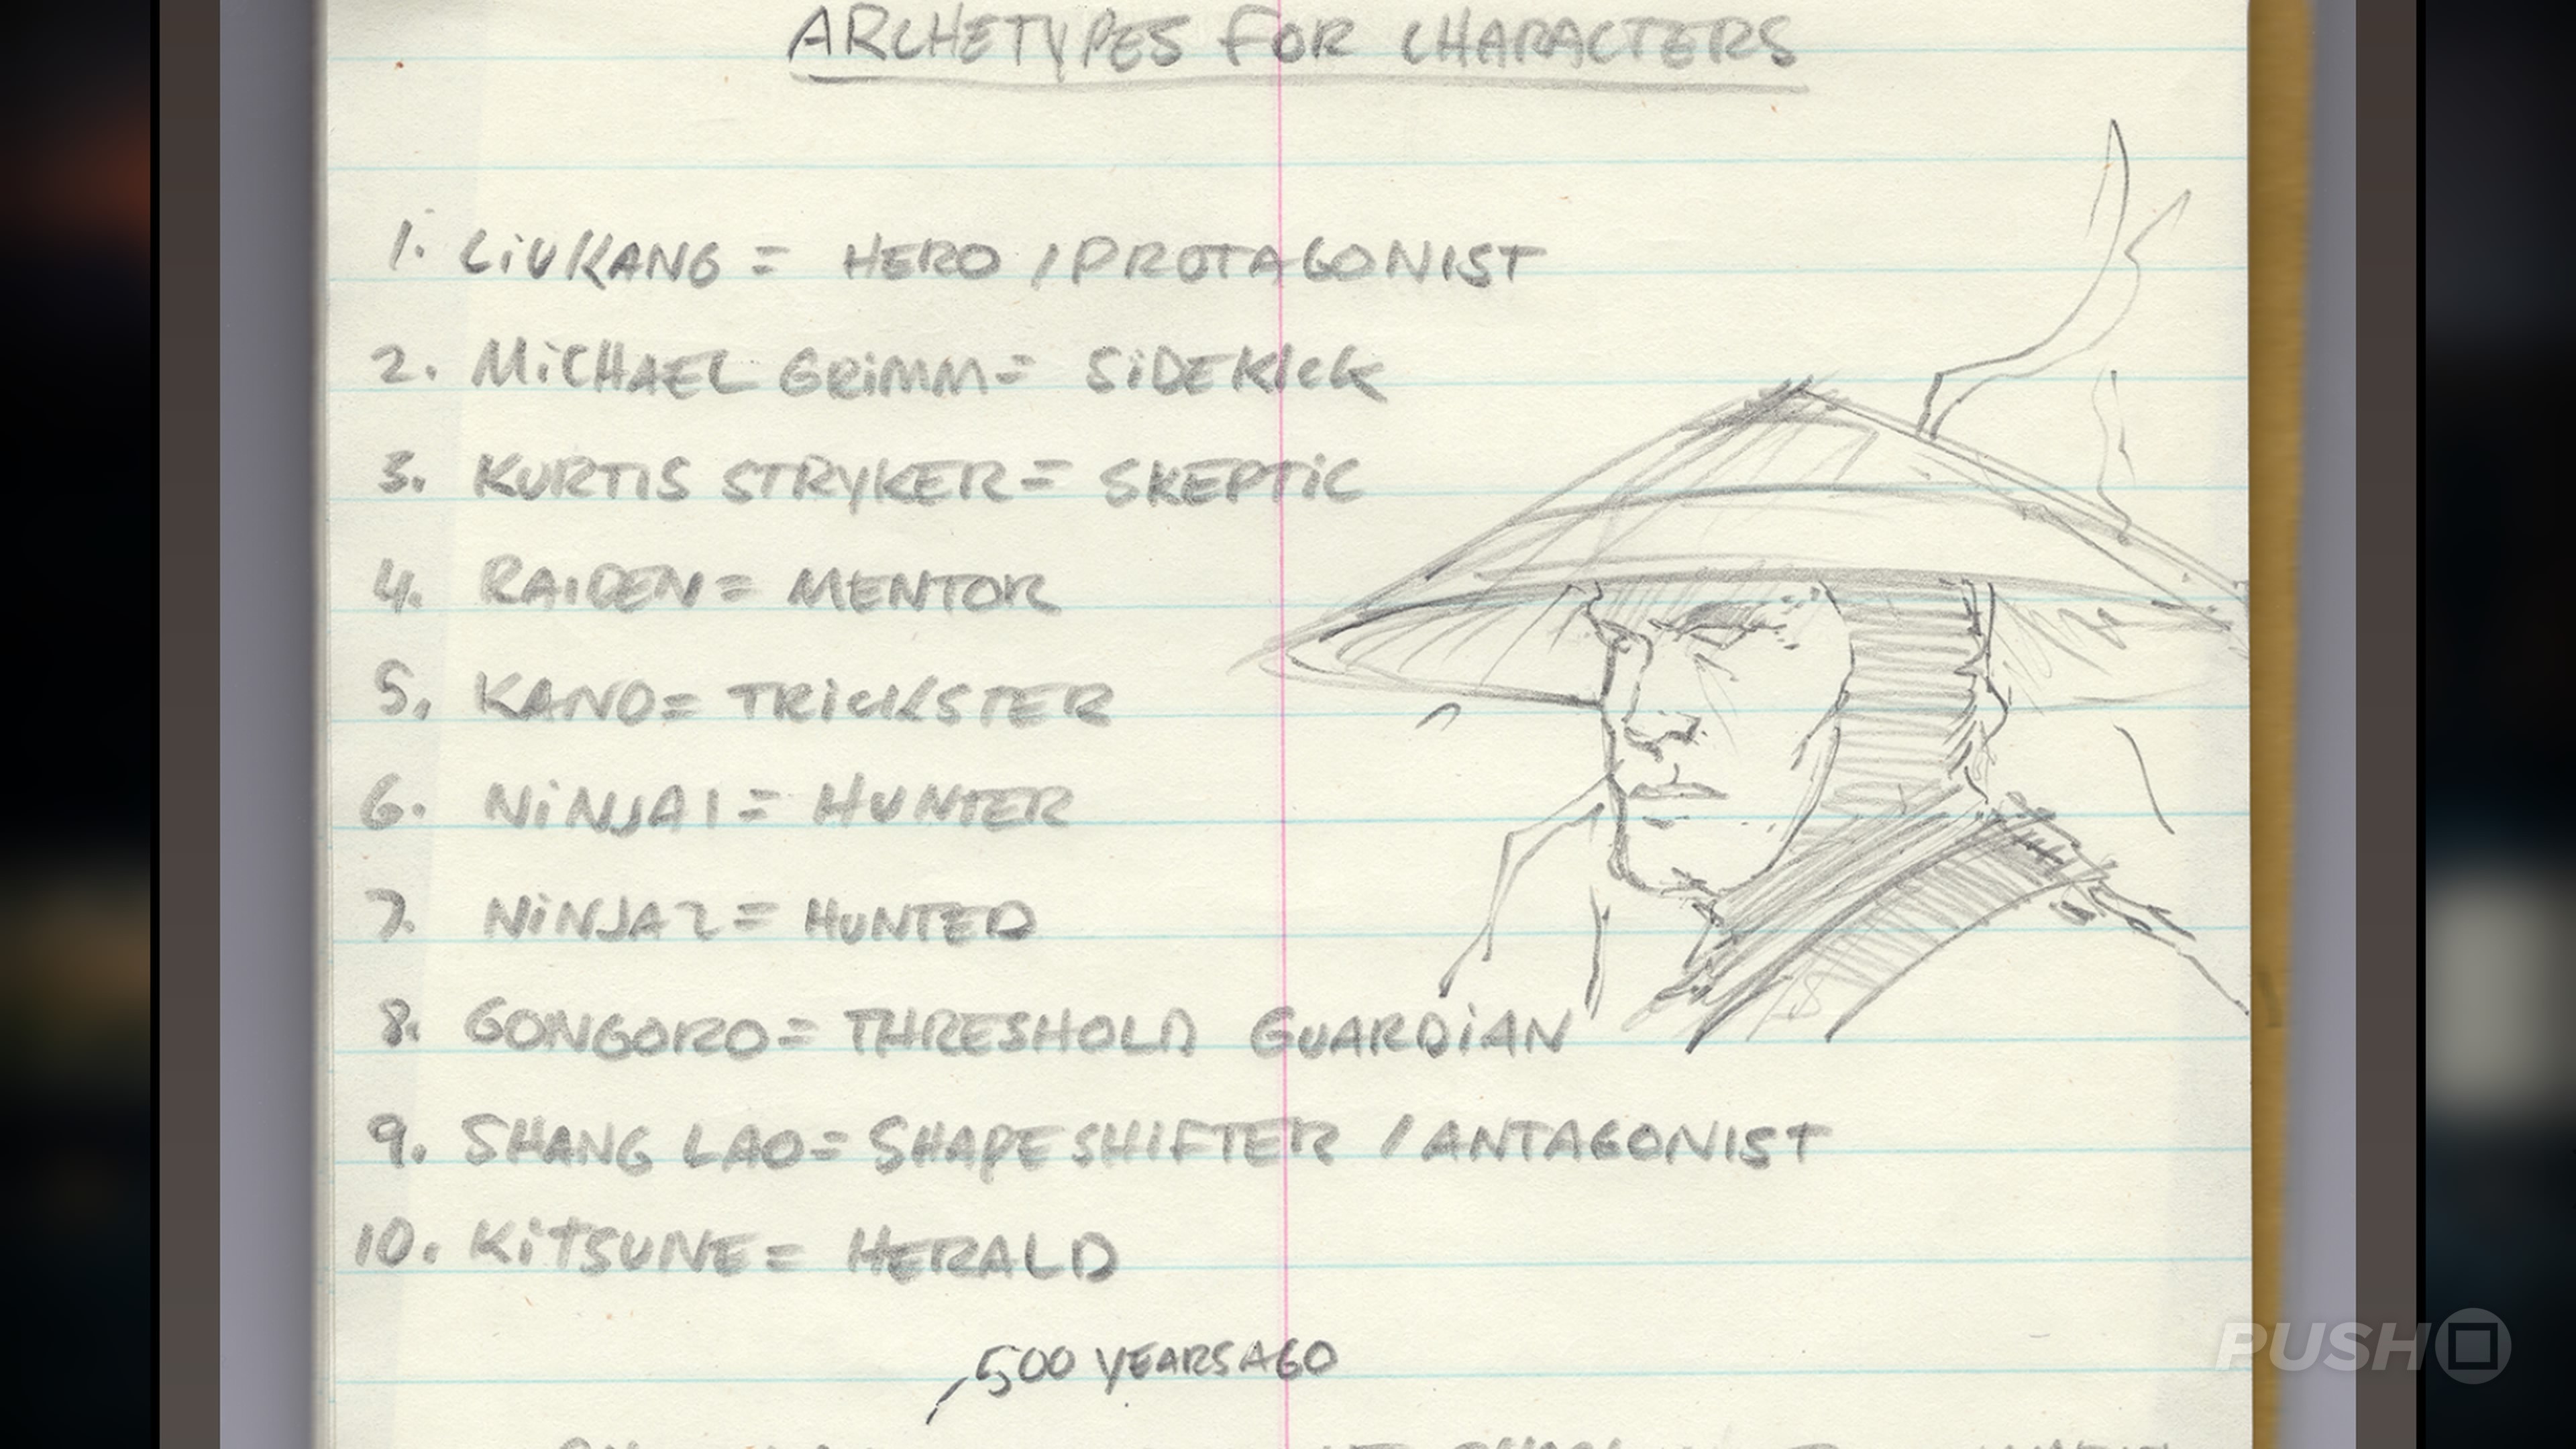 ARCHETYPES FOR CHARACTERS
1. LIU KANG = HERO / PROTAGONIST
2. MICHAEL GRIMM = SIDEKICK
3. KURTIS STRYKER = SKEPTIC
4. RAIDEN = MENTOR
5. KANO = TRICKSTER
6. NINJA 1 = HUNTER
7. NINJA 2 = HUNTED
8. GONGORO = THRESHOLD GUARDIAN
9. SHANG LAO = SHAPESHIFTER / ANTAGONIST
10. KITSUNE = HERALD
500 YEARS AGO
PUSH